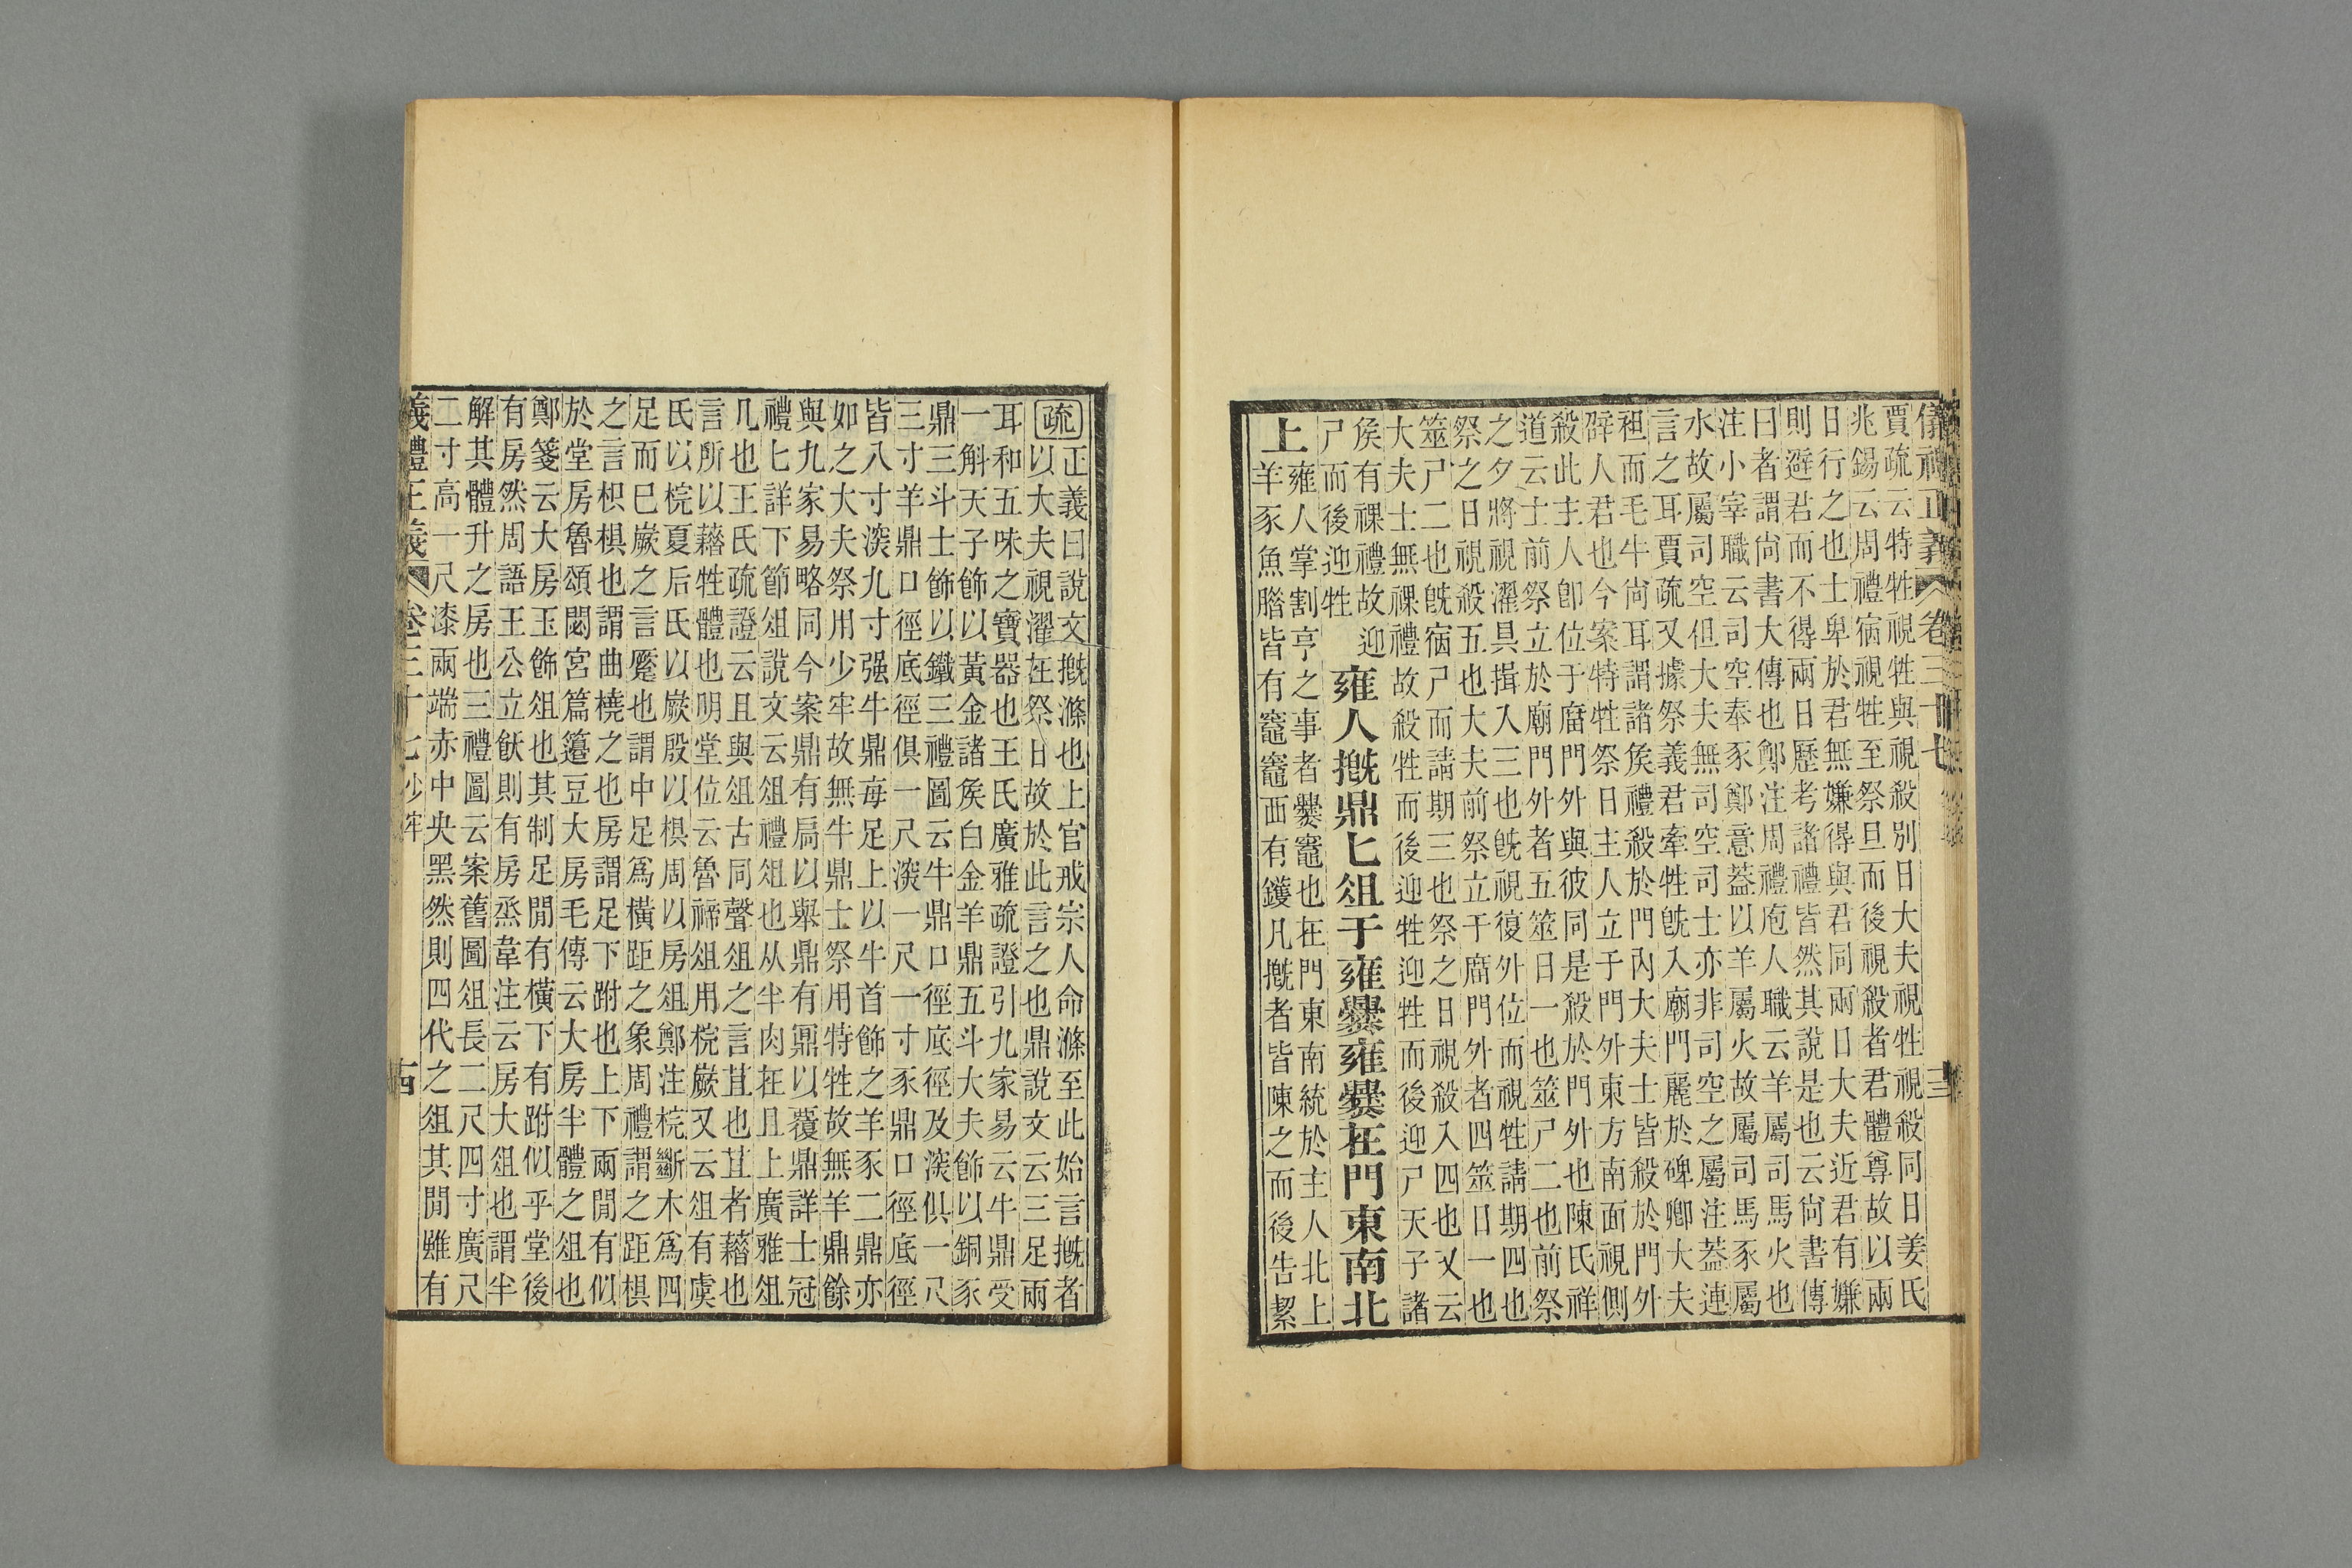 儀禮正義 卷三十七 三
賈疏云特牲視牲與視殺別日大夫視牲視殺同日姜氏
兆錫云周禮宿視牲至祭旦而後視殺者君體尊故以兩
日行之也士卑於君無嫌得與君同兩日大夫近君有嫌
則避君而不得兩日歷考諸禮皆然其說是也云尙書傳
曰者謂尙書大傳也鄭注周禮庖人職云羊屬司馬火也
注小宰職云司空奉豕鄭意蓋以羊屬火故屬司馬豕屬
水故屬司空但大夫無司空司士亦非司空之屬注蓋連
言之耳賈疏又據祭義君牽牲旣入廟門麗於碑卿大夫
袒而毛牛尙耳謂諸侯禮殺於門內大夫士皆殺於門外
辟人君也今案特牲祭日主人立于門外東方南面視側
殺此主人卽位于庿門外與彼同是殺於門外也陳氏祥
道云士前祭立於廟門外者五筮日一也筮尸二也前祭
之夕將視濯具揖入三也旣視復外位而視牲請期四也
祭之日視殺五也大夫前祭立于庿門外者四筮日一也
筮尸二也旣宿尸而請期三也祭之日視殺入四也又云
大夫士無祼禮故殺牲而後迎牲迎牲而後迎尸天子諸
侯有祼禮故迎
尸而後迎牲
雍人摡鼎匕俎于雍爨雍爨在門東南北
上
雍人掌割亨之事者爨竈也在門東南統於主人北上
羊豕魚腊皆有竈竈西有鑊凡摡者皆陳之而後告絜
疏
正義曰說文摡滌也上官戒宗人命滌至此始言摡者
以大夫視濯在祭日故於此言之也鼎說文云三足兩
耳和五味之寶器也王氏廣雅疏證引九家易云牛鼎受
一斛天子飾以黃金諸侯白金羊鼎五斗大夫飾以銅豕
鼎三斗士飾以鐵三禮圖云牛鼎口徑底徑及深俱一尺
三寸羊鼎口徑底徑俱一尺深一尺一寸豕鼎口徑底徑
皆八寸深九寸强牛鼎每足上以牛首飾之羊豕二鼎亦
如之大夫祭用少牢故無牛鼎士祭用特牲故無羊鼎餘
與九家易略同今案鼎有扃以舉鼎有鼏以覆鼎詳士冠
禮匕詳下節俎說文云俎禮俎也从半肉在且上廣雅俎
几也王氏疏證云且與俎古同聲俎之言苴也苴者藉也
言所以藉牲體也明堂位云魯禘俎用梡嶡又云俎有虞
氏以梡夏后氏以嶡殷以椇周以房俎鄭注梡斷木爲四
足而巳嶡之言蹷也謂中足爲橫距之象周禮謂之距椇
之言枳椇也謂曲橈之也房謂足下跗也上下兩閒有似
於堂房魯頌閟宮篇籩豆大房毛傳云大房半體之俎也
鄭箋云大房玉飾俎也其制足閒有橫下有跗似乎堂後
有房然周語王公立飫則有房烝韋注云房大俎也謂半
解其體升之房也三禮圖云案舊圖俎長二尺四寸廣尺
二寸高一尺漆兩端赤中央黑然則四代之俎其閒雖有
義禮正義 卷三十七